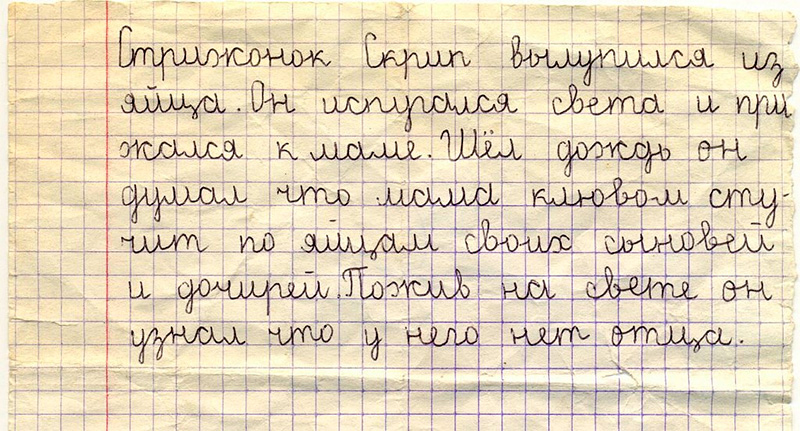 Стрижонок Скрип вылупился из
яйца. Он испугался света и при
жался к маме. Шёл дождь он
думал что мама клювом сту-
чит по яйцам своих сыновей
и дочирей. Пожив на свете он
узнал что у него нет отща.